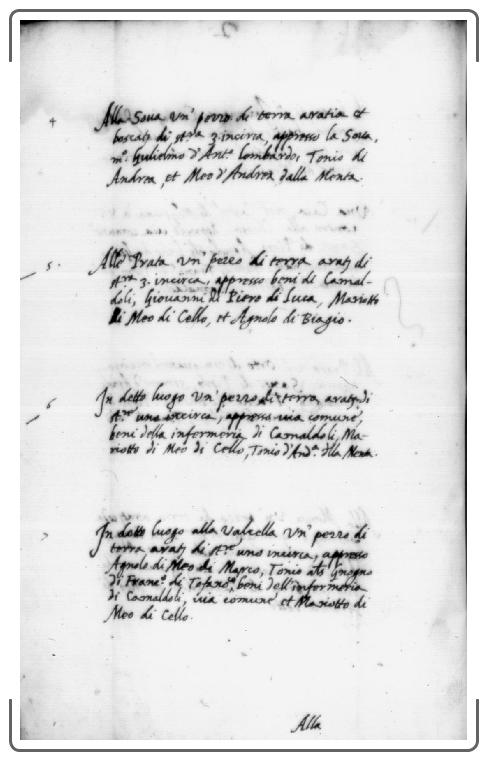 4 Alla Sova un' pezzo di terra aratia et
boscatj di st.ra 3. incirca, appresso la Sova,
m.o Gulielmo d'Ant.o lombardo, Tonio di
Andrea, et Meo d'Andrea dalla Menta.
5. Alle Prata un' pezzo di terra aratj di
st.ra 3. incirca, appresso beni di Camal-
doli, Giovanni di Piero di Luca, Mariotto
di Meo di Cello, et Agnolo di Biagio.
6 In detto luogo un' pezzo di terra aratj di
st.ro uno incirca, appresso via comune,
beni della infermeria di Camaldoli, Ma-
riotto di Meo di Cello, Tonio d'And.a dlla Menta.
7 In detto luogo alla Valcella un' pezzo di
terra aratj di st.ro uno incirca, appresso
Agnolo di Meo di Marco, Tonio als Gnogno
di Franc.o di Tofano, beni dell'infermeria
di Camaldoli, via comune et Mariotto di
Meo di Cello.
Alla